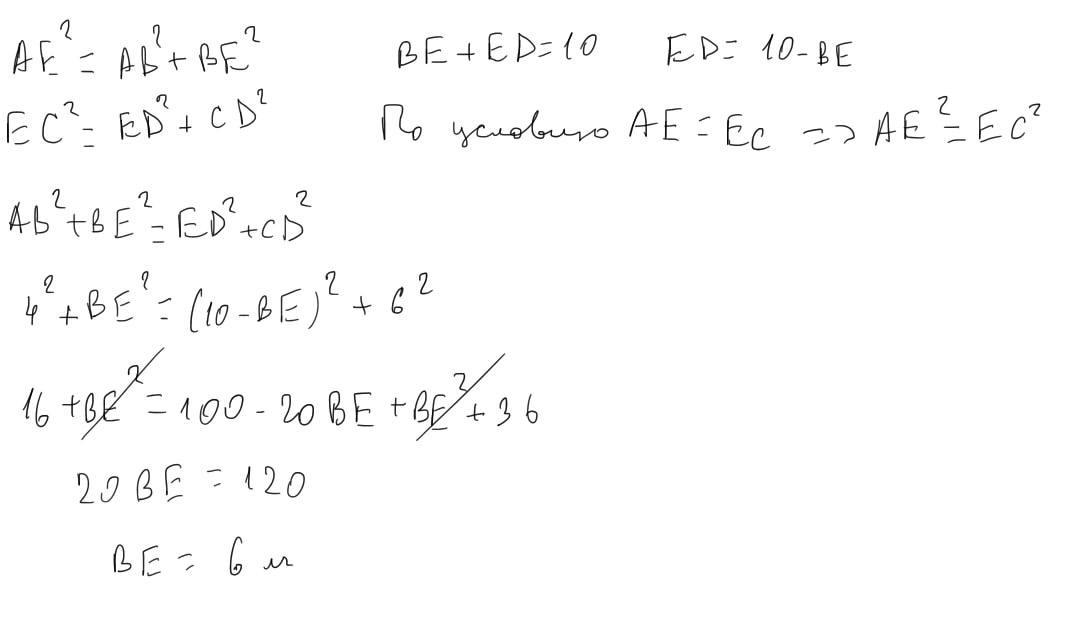 AE² = AB² + BE² BE + ED = 10 ED = 10 - BE
EC² = ED² + CD² По условию AE = EC => AE² = EC²
AB² + BE² = ED² + CD²
4² + BE² = (10 - BE)² + 6²
16 + BE² = 100 - 20 BE + BE² + 36
20 BE = 120
BE = 6 м